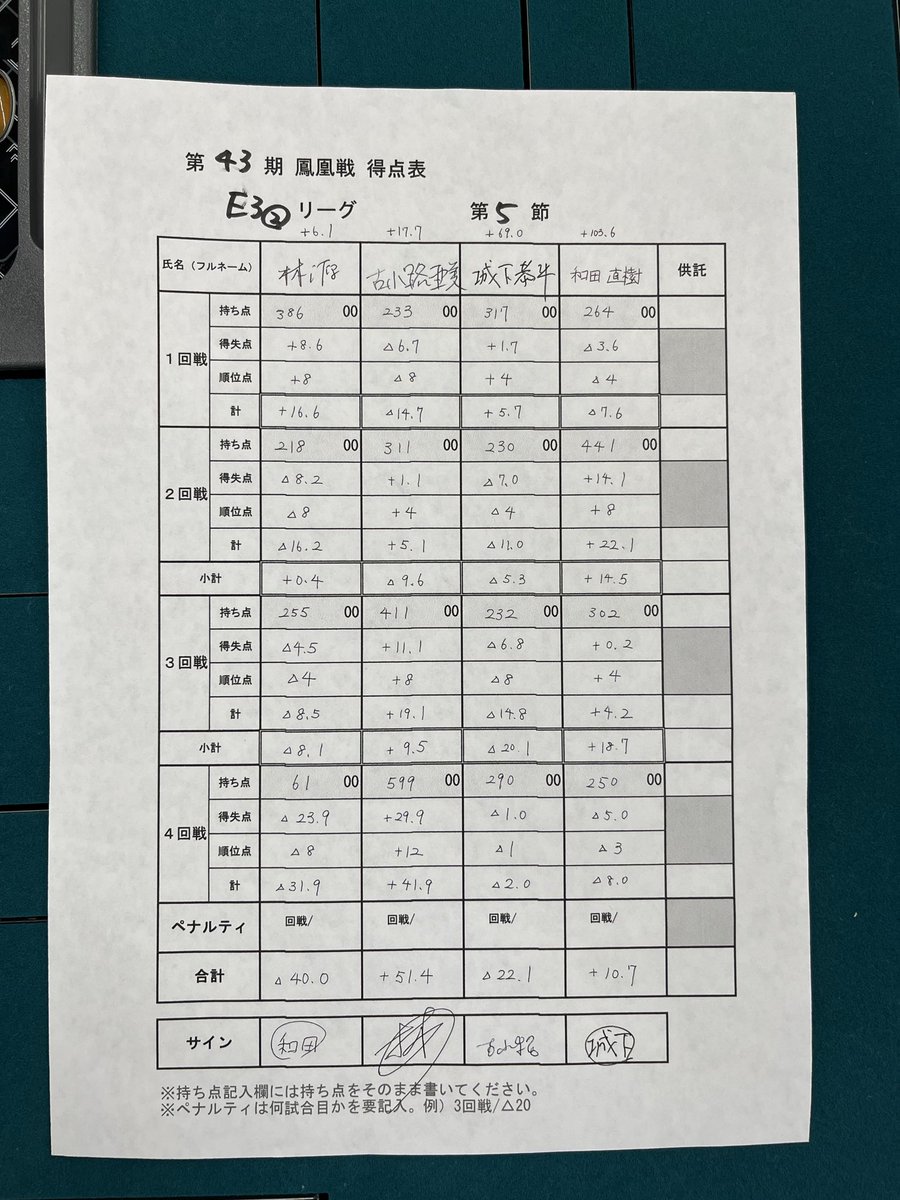 第 43 期 鳳凰戦 得点表
E3② リーグ 第 5 節
+6.1 +17.7 +69.0 +103.6
氏名（フルネーム） 林 古小路 城下 和田 直樹 供託
1回戦
持ち点 386 00 233 00 317 00 264 00
得失点 +8.6 △6.7 +1.7 △3.6
順位点 +8 △8 +4 △4
計 +16.6 △14.7 +5.7 △7.6
2回戦
持ち点 218 00 311 00 230 00 441 00
得失点 △8.2 +1.1 △7.0 +14.1
順位点 △8 +4 △4 +8
計 △16.2 +5.1 △11.0 +22.1
小計 +0.4 △9.6 △5.3 +14.5
3回戦
持ち点 255 00 411 00 232 00 302 00
得失点 △4.5 +11.1 △6.8 +0.2
順位点 △4 +8 △8 +4
計 △8.5 +19.1 △14.8 +4.2
小計 △8.1 +9.5 △20.1 +18.7
4回戦
持ち点 61 00 599 00 290 00 250 00
得失点 △23.9 +29.9 △1.0 △5.0
順位点 △8 +12 △1 △3
計 △31.9 +41.9 △2.0 △8.0
ペナルティ 回戦/ 回戦/ 回戦/ 回戦/
合計 △40.0 +51.4 △22.1 +10.7
サイン 和田 林 古小路 城下
※持ち点記入欄には持ち点をそのまま書いてください。
※ペナルティは何試合目かを要記入。例）3回戦/△20